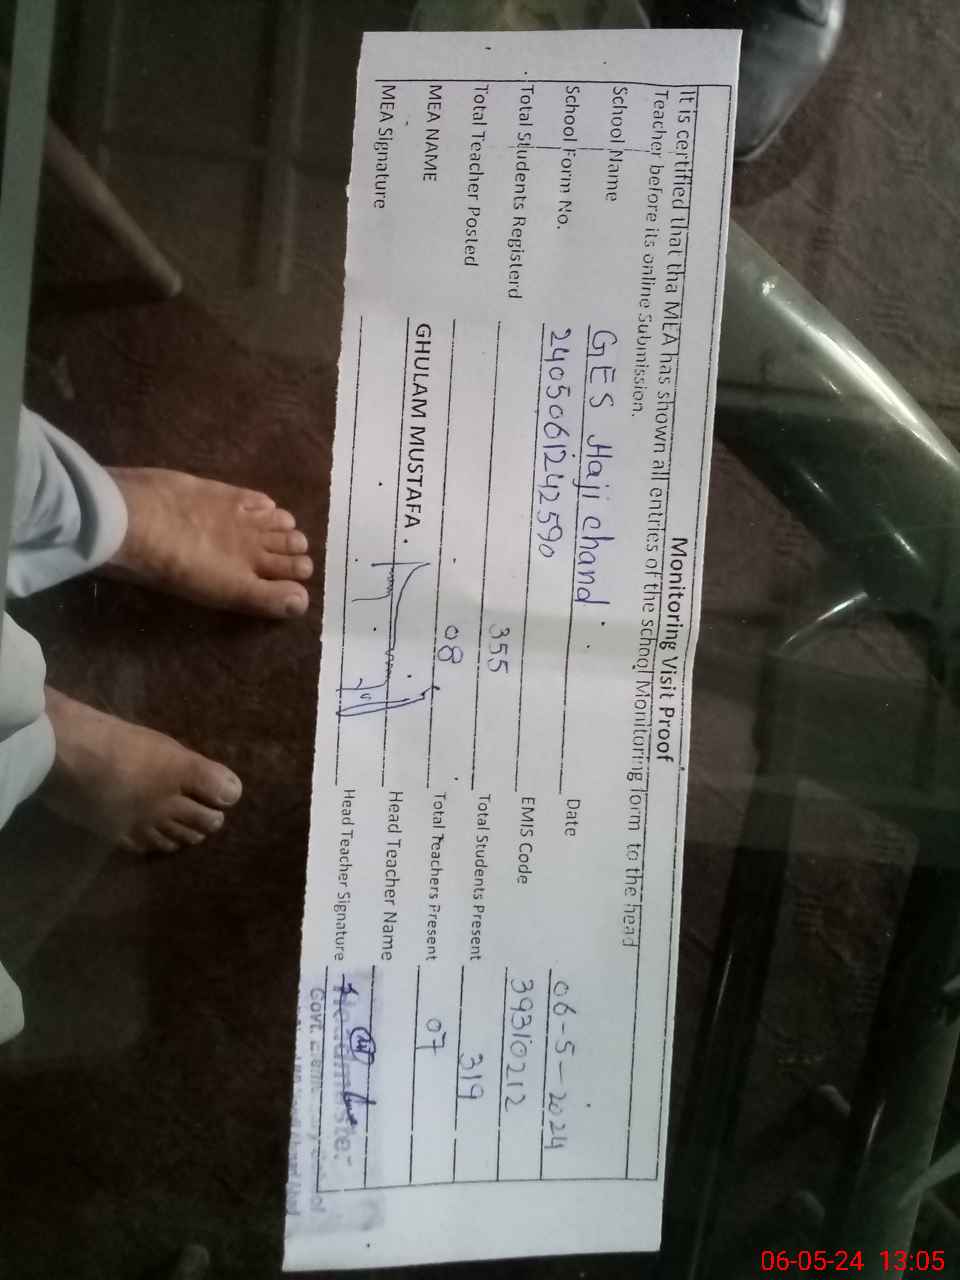 Monitoring Visit Proof
It is certified that tha MEA has shown all entries of the school Monitoring form to the head
Teacher before its online Submission.
School Name GES Haji chand Date 06-5-2024
School Form No. 2405061242590 EMIS Code 39310212
Total Students Registerd 355 Total Students Present 319
Total Teacher Posted 08 Total Teachers Present 07
MEA NAME GHULAM MUSTAFA. Head Teacher Name
MEA Signature Head Teacher Signature
Headmaster
Govt. Elementary School
06-05-24 13:05